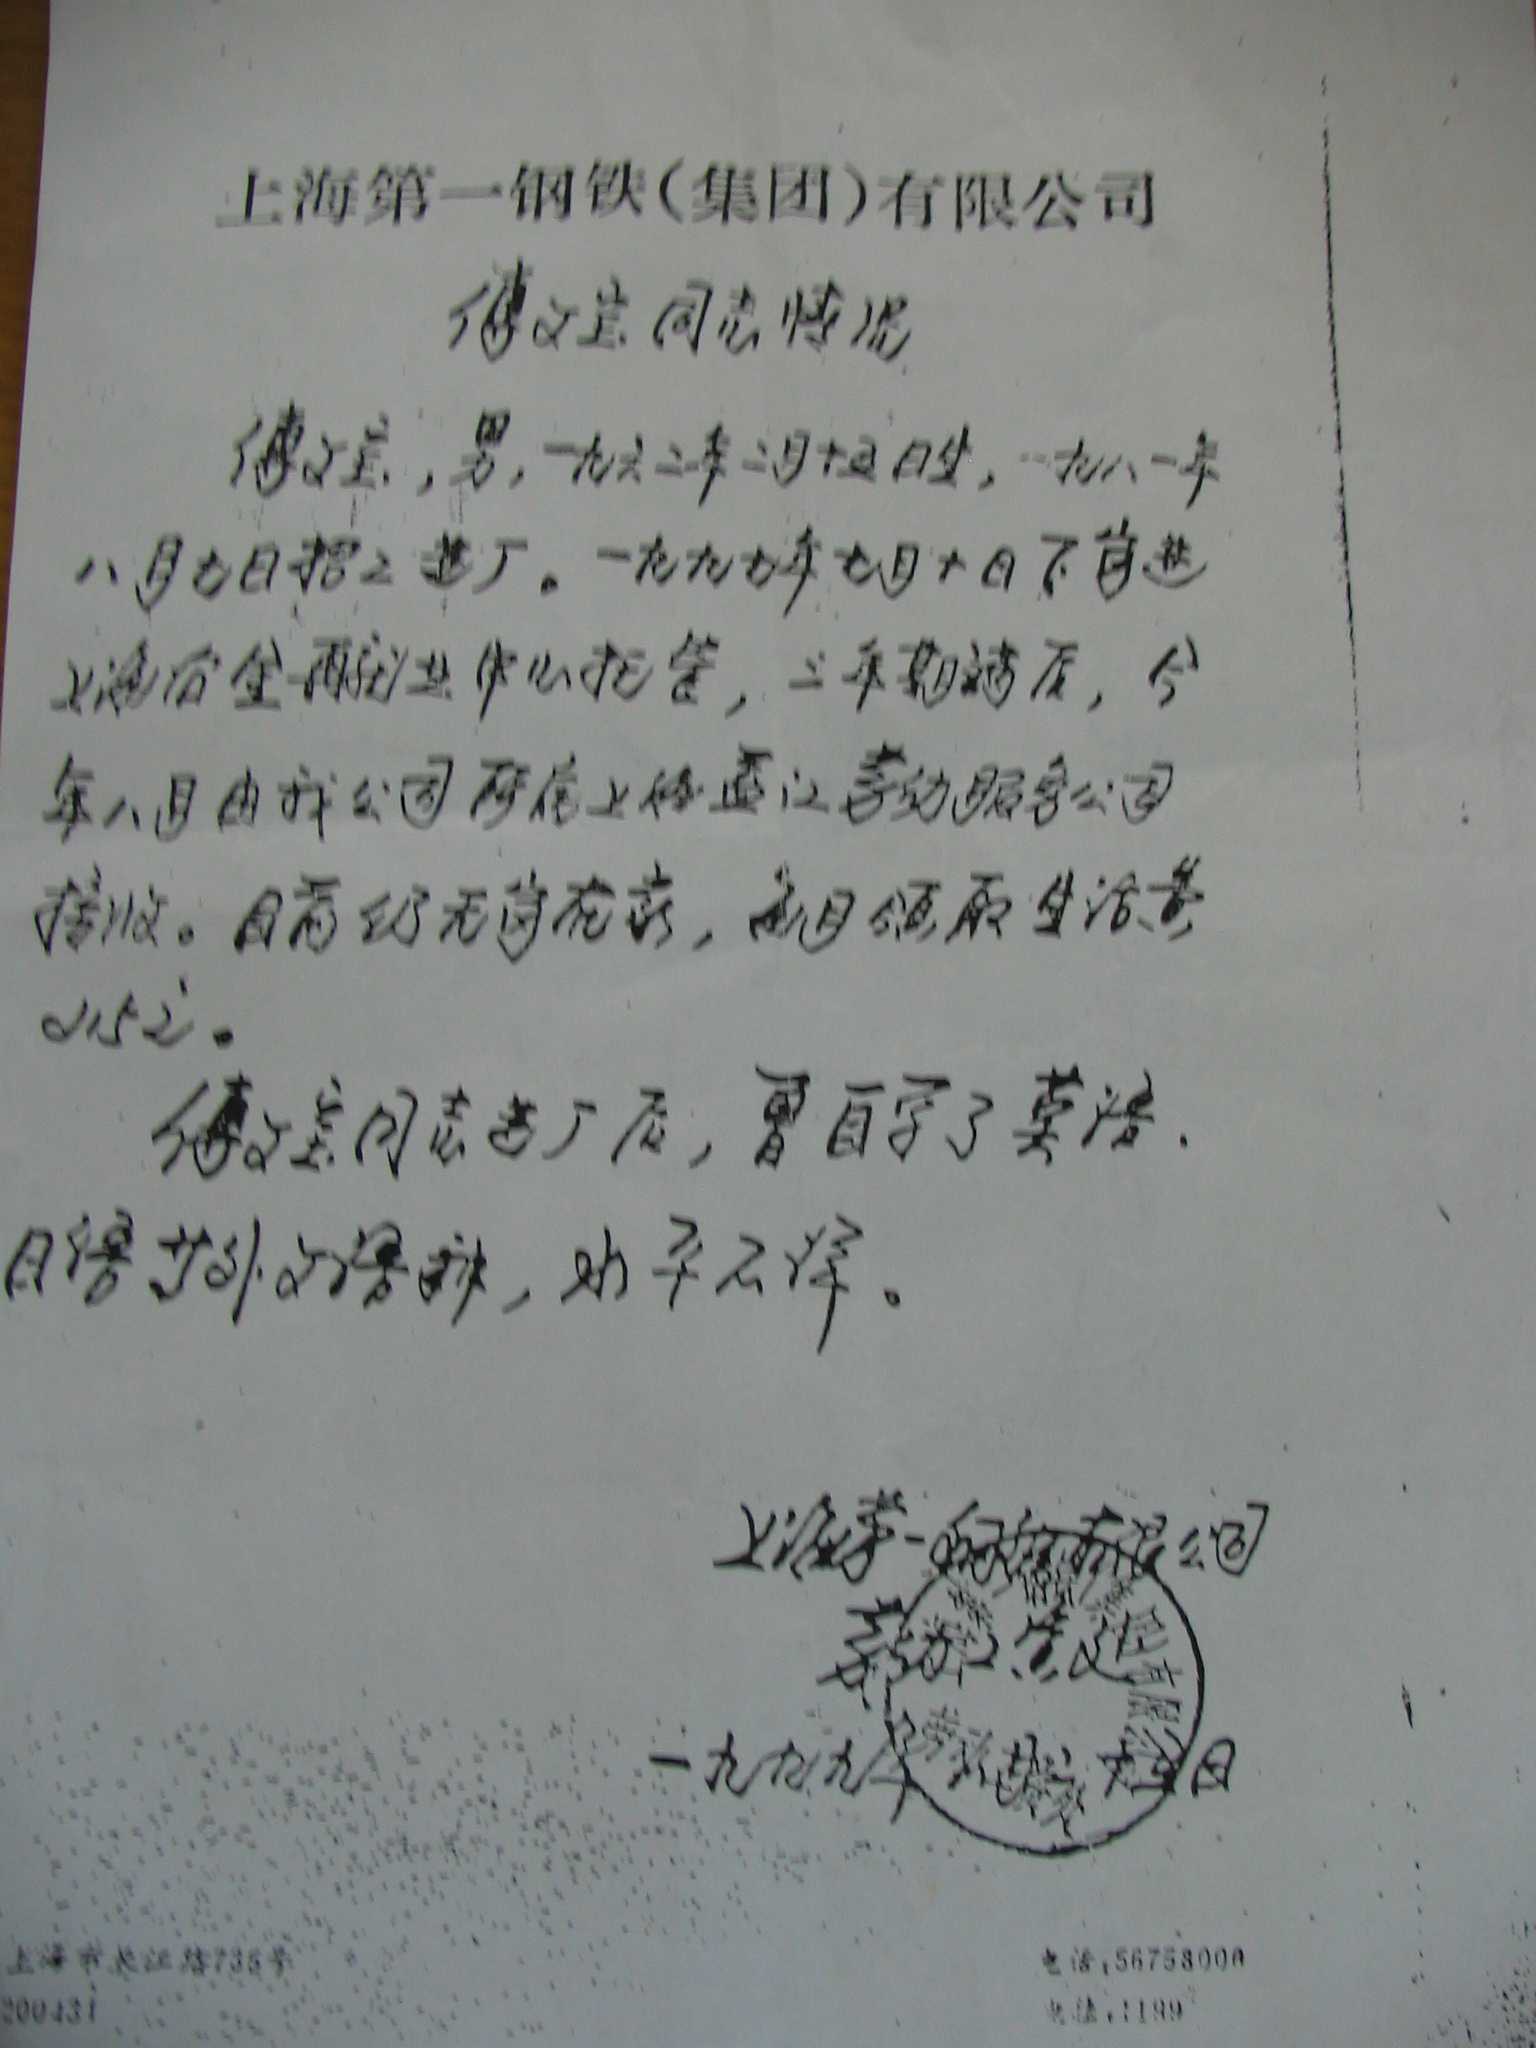 上海第一钢铁(集团)有限公司
傅文宝同志情况
傅文宝,男,一九六二年二月十五日生,一九八一年
八月七日招工进厂。一九九七年七月十日下岗进
上海冶金再就业中心托管,二年期满后,今
年八月由我公司所属上海 劳动服务公司
接收。目前仍无岗 ,每月领取生活费
215元。
傅文宝同志进厂后,曾自学了英语、
日 外文 ,水平不详。
上海第一钢铁有限公司
劳动工资处
一九九九年 日
集团有限公
上海市长江路735号
电话:56758000
200431